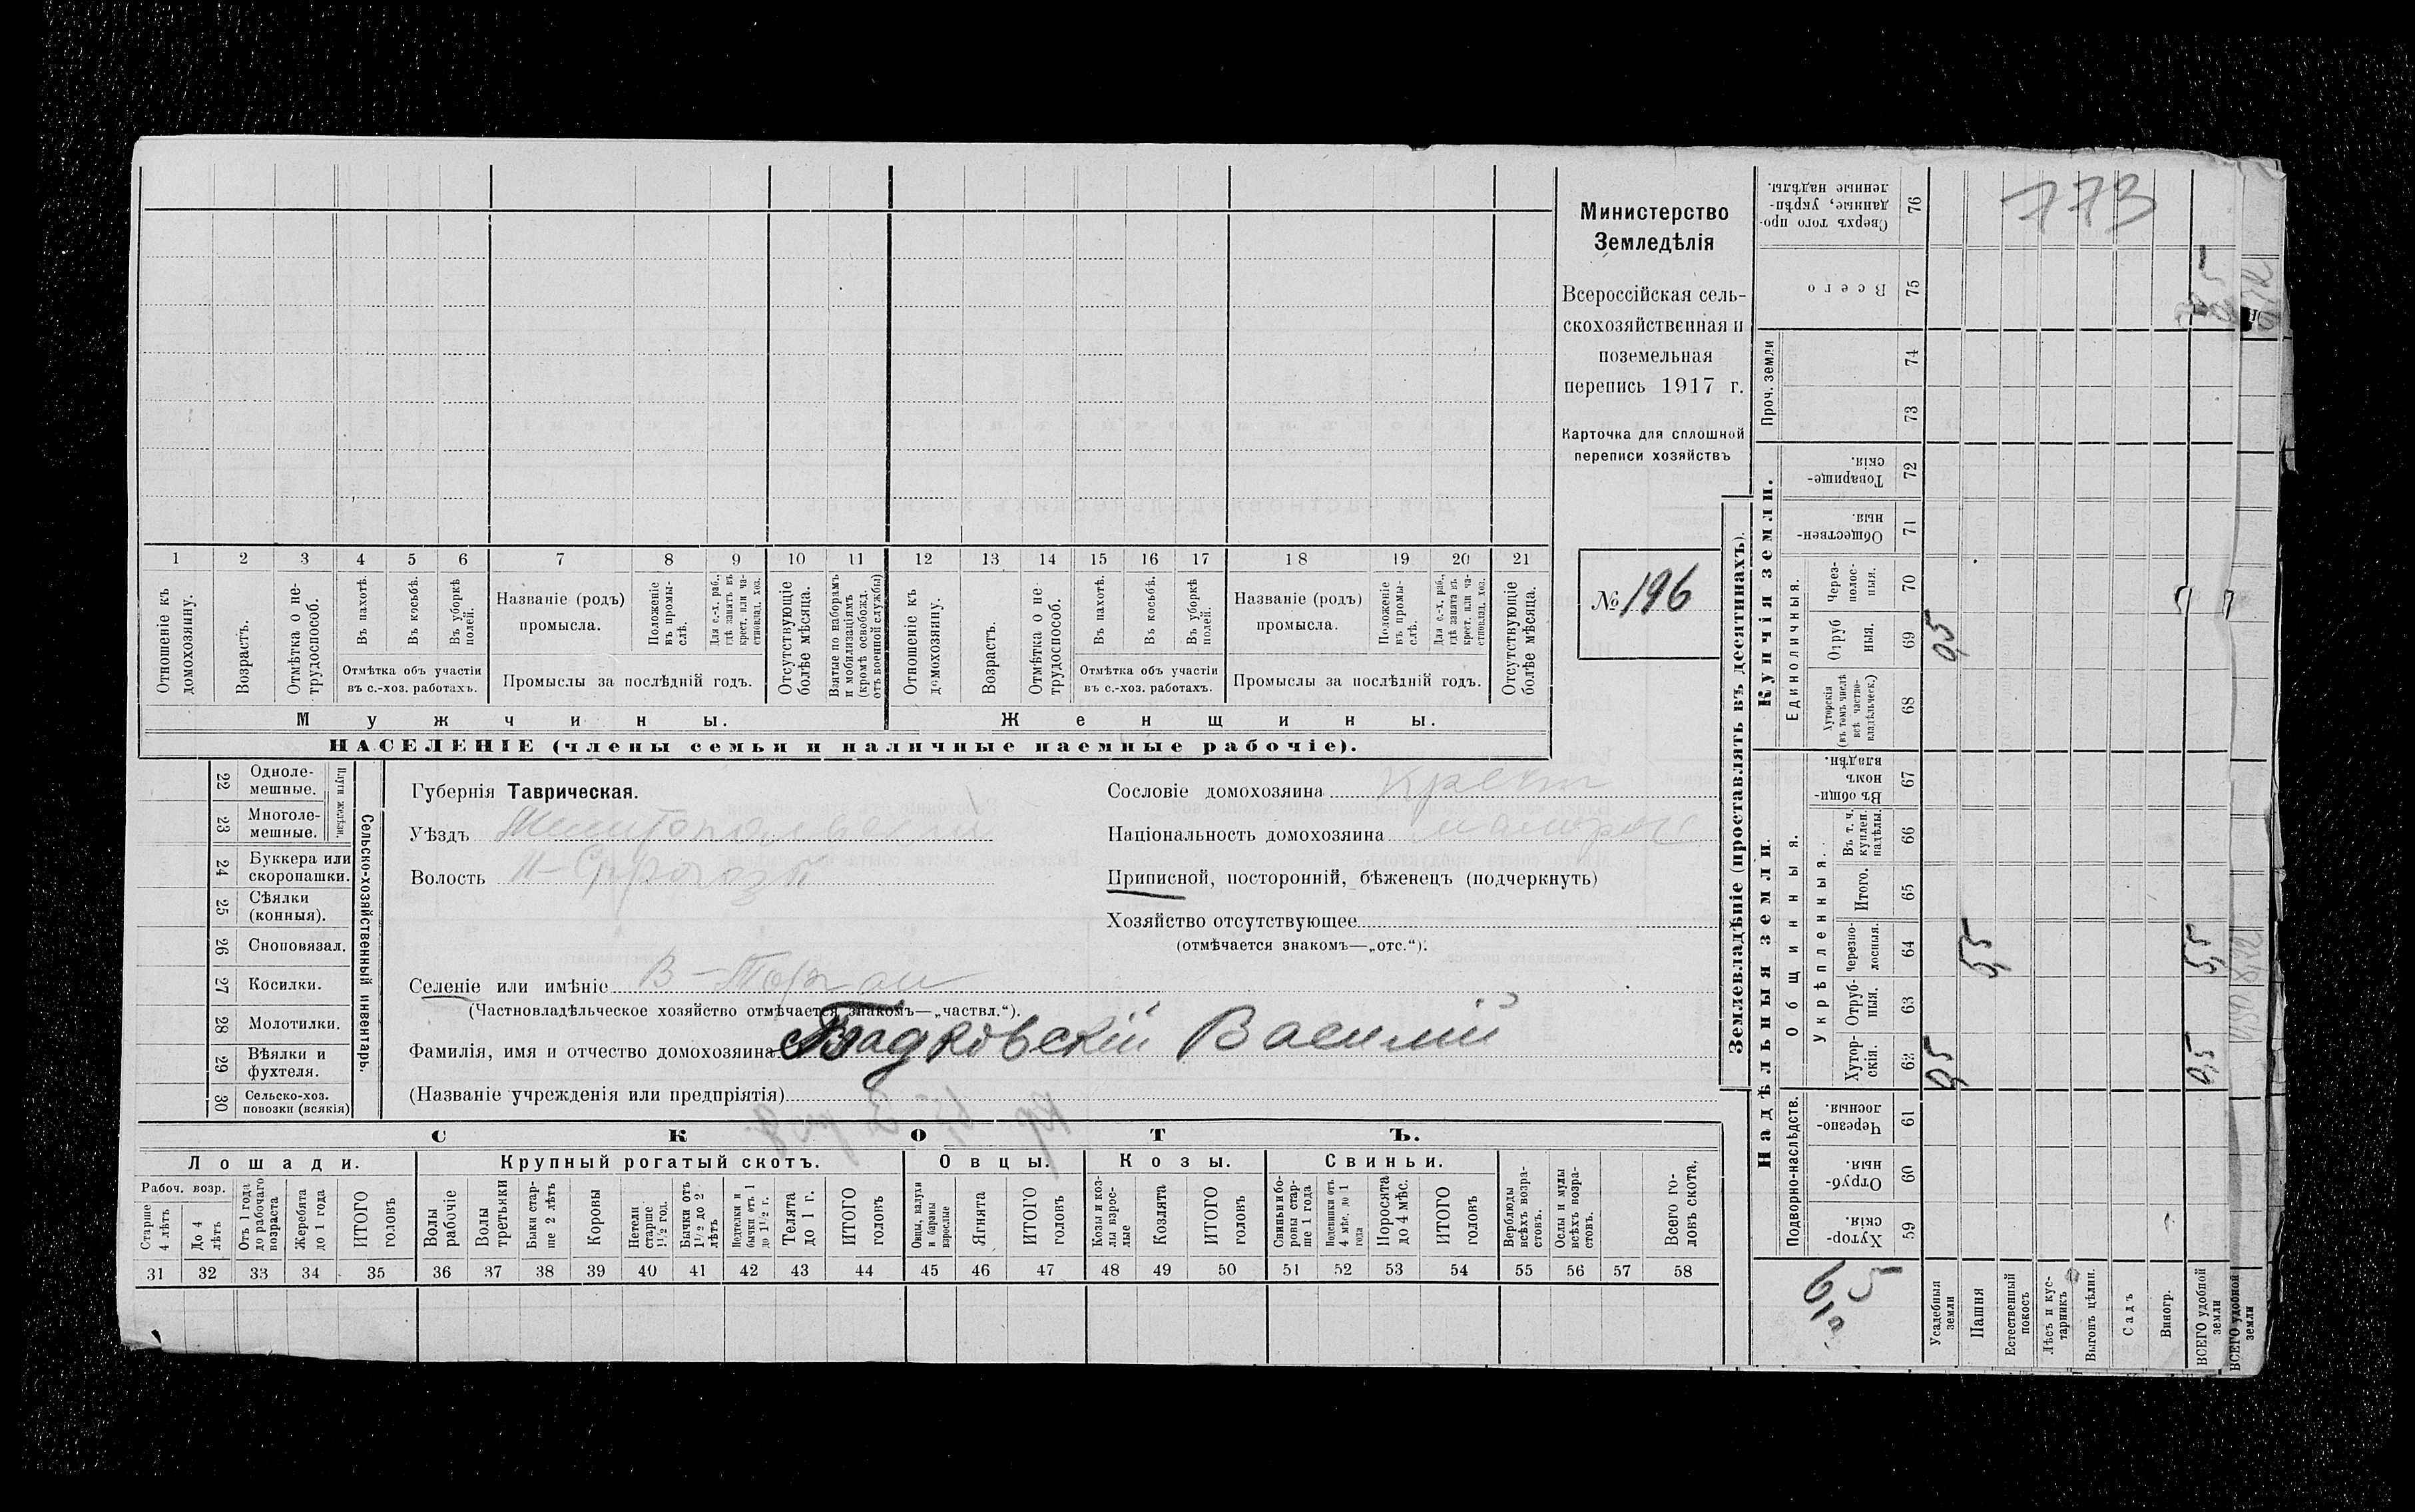 Министерство
Земледѣлія
Всероссійская сель-
скохозяйственная и
поземельная
перепись 1917 г.
Карточка для сплошной
переписи хозяйствъ
№ 196
1 2 3 4 5 6 7 8 9 10 11 12 13 14 15 16 17 18 19 20 21
Отношеніе къ домохозяину.
Возрастъ.
Отмѣтка о не-трудоспособ.
Въ пахотѣ.
Въ косьбѣ.
Въ уборкѣ полей.
Отмѣтка объ участіи
въ с.-хоз. работахъ.
Названіе (родъ)
промысла.
Положеніе въ промы-слѣ.
Для с.-х. раб., гдѣ занятъ въ крест. или ча-стновлад. хоз.
Промыслы за послѣдній годъ.
Отсутствующіе болѣе мѣсяца.
Взятые по наборамъ и мобилизаціямъ (кромѣ освобожд. отъ военной службы)
Отношеніе къ домохозяину.
Возрастъ.
Отмѣтка о не-трудоспособ.
Въ пахотѣ.
Въ косьбѣ.
Въ уборкѣ полей.
Отмѣтка объ участіи
въ с.-хоз. работахъ.
Названіе (родъ)
промысла.
Положеніе въ промы-слѣ.
Для с.-х. раб., гдѣ занята въ крест. или ча-стновлад. хоз.
Промыслы за послѣдній годъ.
Отсутствующіе болѣе мѣсяца.
Мужчины.
Женщины.
НАСЕЛЕНІЕ (члены семьи и наличные наемные рабочіе).
22 Одноле-мешные.
23 Многоле-мешные.
Плуги желѣзн.
24 Буккера или скоропашки.
25 Сѣялки (конныя).
26 Сноповязал.
27 Косилки.
28 Молотилки.
29 Вѣялки и фухтеля.
30 Сельско-хоз. повозки (всякія)
Сельско-хозяйственный инвентарь.
Губернія Таврическая.
Уѣздъ Мелитопольскій
Волость Н-Сѣрогозп
Селеніе или имѣніе В-Торгаи
(Частновладѣльческое хозяйство отмѣчается знакомъ—„частвл.“).
Фамилія, имя и отчество домохозяина Бадковскій Василій
(Названіе учрежденія или предпріятія)
Сословіе домохозяина крест
Національность домохозяина малорос
Приписной, посторонній, бѣженецъ (подчеркнуть)
Хозяйство отсутствующее
(отмѣчается знакомъ—„отс.“).
СКОТЪ.
Лошади.
Крупный рогатый скотъ.
Овцы.
Козы.
Свиньи.
Рабоч. возр.
Старше 4 лѣтъ
До 4 лѣтъ
Отъ 1 года до рабочаго возраста
Жеребята до 1 года
ИТОГО головъ
Волы рабочіе
Волы третьяки
Быки стар-ше 2 лѣтъ
Коровы
Нетели старше 1½ год.
Бычки отъ 1½ до 2 лѣтъ
Подтелки и бычки отъ 1 до 1½ г.
Телята до 1 г.
ИТОГО головъ
Овцы, валухи и бараны взрослые
Ягнята
ИТОГО головъ
Козы и коз-лы взрос-лые
Козлята
ИТОГО головъ
Свиньи и бо-ровы стар-ше 1 года
Подсвинки отъ 4 мѣс. до 1 года
Поросята до 4 мѣс.
ИТОГО головъ
Верблюды всѣхъ возра-стовъ.
Ослы и мулы всѣхъ возра-стовъ.
Всего го-ловъ скота.
31 32 33 34 35 36 37 38 39 40 41 42 43 44 45 46 47 48 49 50 51 52 53 54 55 56 57 58
Землевладѣніе (проставлять въ десятинахъ).
Надѣльныя земли.
Подворно-наслѣдств.
Хутор-скія. 59
Отруб-ныя. 60
Черезпо-лосныя. 61
Общинныя.
Укрѣпленныя.
Хутор-скія. 62
Отруб-ныя. 63
Черезпо-лосныя. 64
Итого. 65
Въ т. ч. куплен. надѣлы. 66
Въ общи-номъ владѣн. 67
Купчія земли.
Единоличныя.
Хуторскія (въ томъ числѣ всѣ частно-владѣльческ.) 68
Отруб-ныя. 69
Через-полос-ныя. 70
Обществен-ныя. 71
Товарище-скія. 72
Проч. земли
73 74
Всего 75
Сверхъ того про-данные, укрѣп-ленные надѣлы. 76
773
Усадебныя земли 0,5 0,5
Пашня 5,5
Естественный покосъ
Лѣсъ и кус-тарникъ
Выгонъ цѣлин.
Садъ
Виногр.
ВСЕГО удобной земли 0,5 5,5
ВСЕГО удобной земли